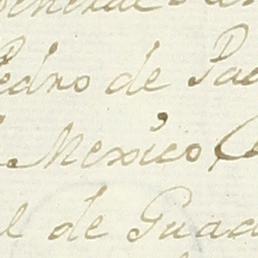 General
Pedro de Pa
Mexico
l de Guad